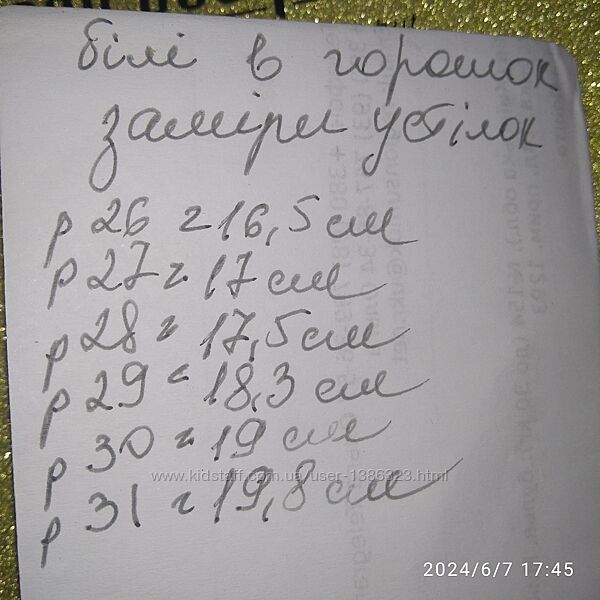 білі в горошок
заміри устілок
р 26 = 16,5 см
р 27 = 17 см
р 28 = 17,5 см
р 29 = 18,3 см
р 30 = 19 см
р 31 = 19,8 см
www.kidstaff.com.ua/user-1386323.html
2024/6/7 17:45